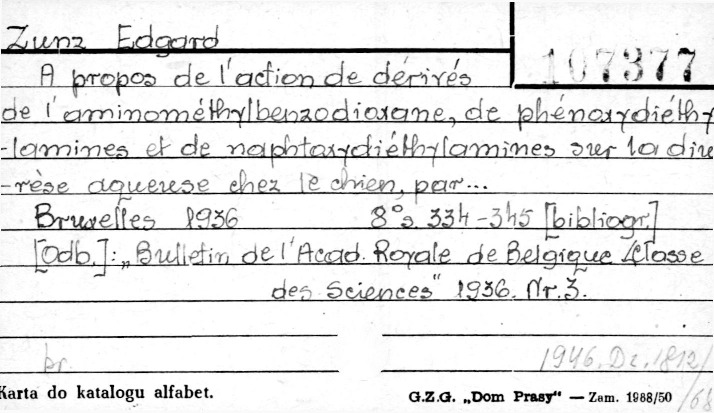 Zunz Edgard
107377
A propos de l'action de dérivés
de l'aminométhylbenzodioxane, de phénoxydiéthy
-lamines et de naphtoxydiéthylamines sur la diu
-rèse aqueuse chez le chien, par...
Bruxelles 1936 8° s. 334-345 [bibliogr.]
[Odb.]: „Bulletin de l'Acad. Royale de Belgique Classe
des Sciences" 1936. Nr. 3.
pr. 1946. Dz. 1812/68
Karta do katalogu alfabet. G.Z.G. „Dom Prasy" — Zam. 1988/50